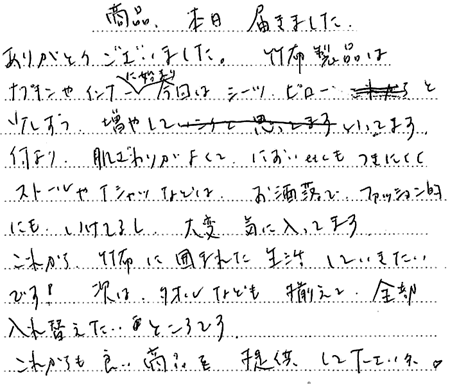 商品、本日 届きました。
ありがとうございました。 竹布製品は
ナプキンやインナーに始まり 今回は シーツ、ピロー と
少しずつ、増やして いってます。
何より、肌ざわりがよくて、におい etcも つきにくく
ストールやTシャツなどは、お洒落で、ファッション的
にも、いけてるし、大変 気に入ってます。
これから、竹布に囲まれた生活 していきたい
です! 次は、タオルなども 揃えて、全部
入れ替えたい ところです。
これからも 良い 商品を 提供 して下さいネ。